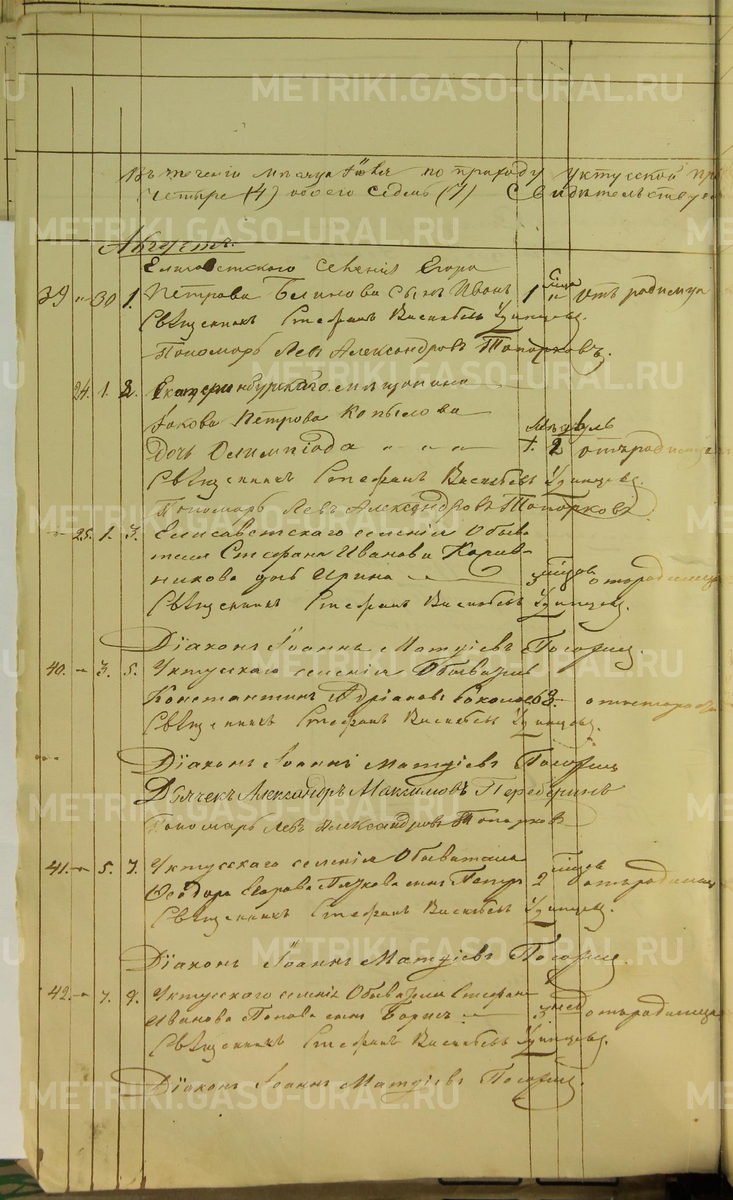 Въ теченіи мѣсяца Іюля по приходу Уктусской
Четыре (4) обоего седмь (7) Свидѣтельству
Августъ.
Елисаветскаго селенія Егора
39 " 30 1. Петрова Блинова сынъ Иванъ 1 отъ родимца
Священникъ Стефанъ Васильевъ Удинцевъ.
Пономарь Левъ Александровъ Топорковъ.
24. 1. 2. Екатеринбургскаго мѣщанина
Іакова Петрова Копылова
дочь Олимпіада " " " 1. 2 отъ родимца
Священникъ Стефанъ Васильевъ Удинцевъ.
Пономарь Левъ Александровъ Топорковъ
25. 1. 3. Елисаветскаго селенія Обыва-
теля Стефана Иванова
дочь Ирина 3 отъ родимца
Священникъ Стефанъ Васильевъ Удинцевъ.
Діаконъ Іоаннъ Матѳіевъ
40. 3. 5. Уктусскаго селенія Обыватель
Константинъ Адріановъ Соколовъ
Священникъ Стефанъ Васильевъ Удинцевъ.
Діаконъ Іоаннъ Матѳіевъ
Дьячекъ Александръ Максимовъ
Пономарь Левъ Александровъ Топорковъ
41. 5. 7. Уктусскаго селенія Обывателя
Ѳеодора Егорова сынъ Петръ 2 отъ родимца
Священникъ Стефанъ Васильевъ Удинцевъ.
Діаконъ Іоаннъ Матѳіевъ
42. 7. 9. Уктусскаго селенія Обывателя Стефана
Иванова Попова сынъ Борисъ 3 нед отъ родимца
Священникъ Стефанъ Васильевъ Удинцевъ.
Діаконъ Іоаннъ Матѳіевъ
METRIKI.GASO-URAL.RU